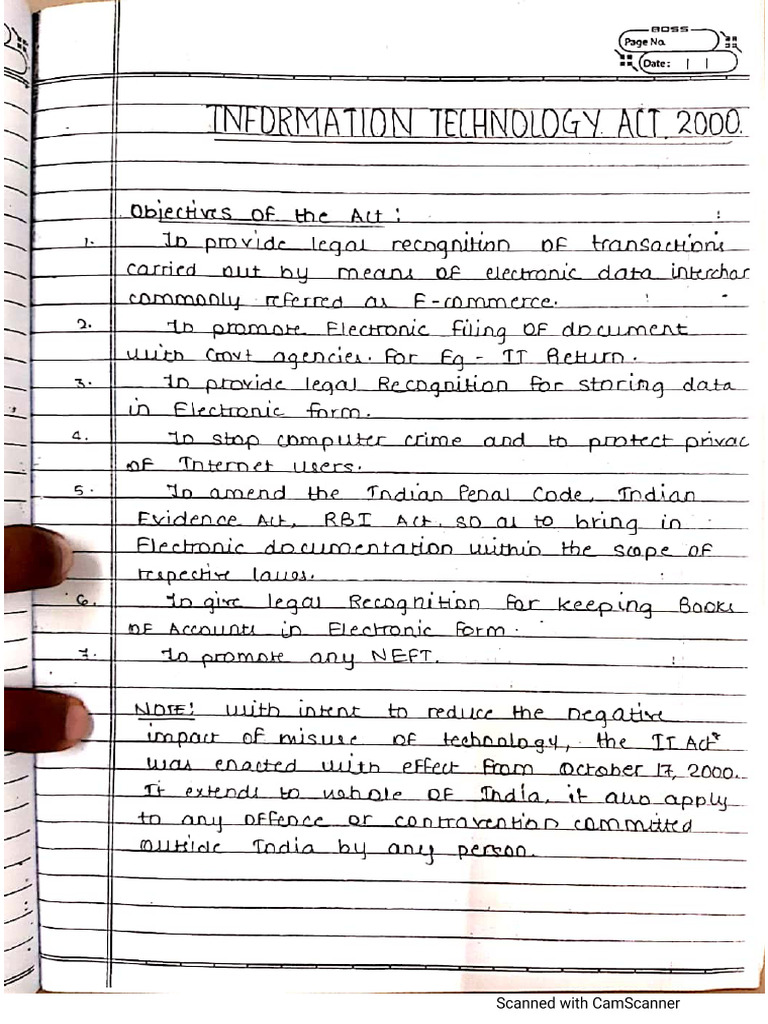 BOSS
Page No.
Date: | |
INFORMATION TECHNOLOGY ACT, 2000.
Objectives of the Act :
1. To provide legal recognition of transactions
carried out by means of electronic data interchar
commonly referred as E-commerce.
2. To promote Electronic filing of document
with Govt agencies. for Eg - IT Return.
3. To provide legal Recognition for storing data
in Electronic form.
4. To stop computer crime and to protect privac
of Internet users.
5. To amend the Indian Penal Code, Indian
Evidence Act, RBI Act. so as to bring in
Electronic documentation within the scope of
respective laws.
6. To give legal Recognition for keeping Books
of Accounts in Electronic form.
7. To promote any NEFT.
NOTE: with intent to reduce the negative
impact of misuse of technology, the IT Act
was enacted with effect from October 17, 2000.
It extends to whole of India, it also apply
to any offence or contravention committed
outside India by any person.
Scanned with CamScanner